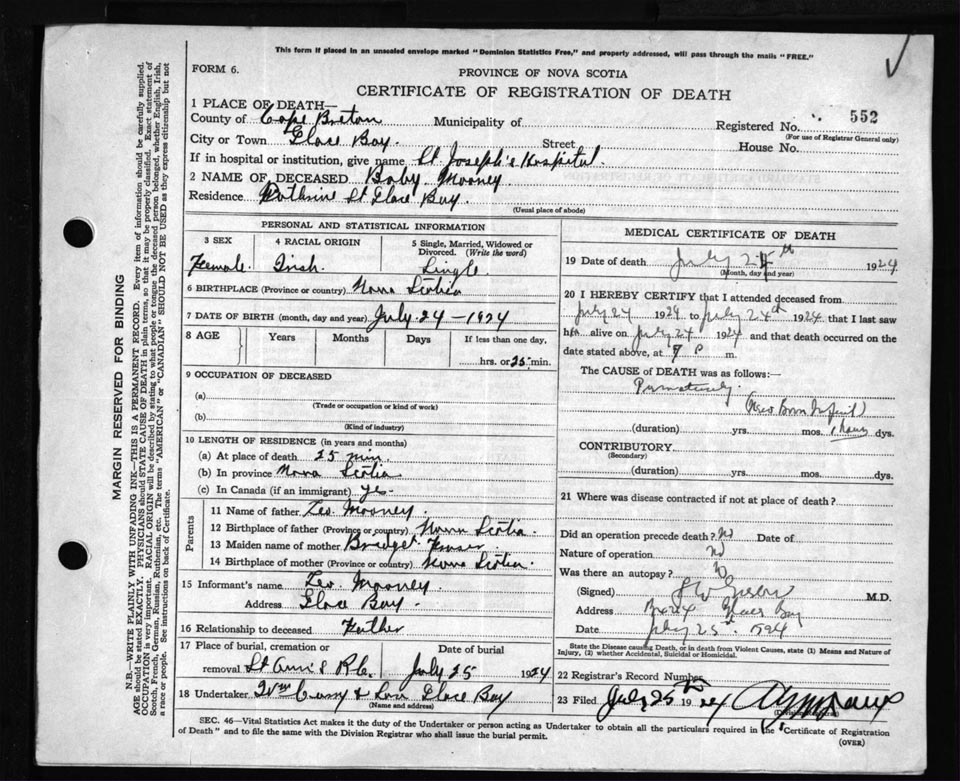 This form if placed in an unsealed envelope marked "Dominion Statistics Free," and properly addressed, will pass through the mails "FREE."
FORM 6.
PROVINCE OF NOVA SCOTIA
CERTIFICATE OF REGISTRATION OF DEATH
1 PLACE OF DEATH—
County of Cape Breton Municipality of Registered No. 552
(For use of Registrar General only)
City or Town Glace Bay Street House No.
If in hospital or institution, give name St. Joseph's Hospital.
2 NAME OF DECEASED Baby Mooney.
Residence St Glace Bay.
(Usual place of abode)
PERSONAL AND STATISTICAL INFORMATION
3 SEX 4 RACIAL ORIGIN 5 Single, Married, Widowed or Divorced. (Write the word)
Female Irish. Single
6 BIRTHPLACE (Province or country) Nova Scotia
7 DATE OF BIRTH (month, day and year) July. 24 - 1924
8 AGE Years Months Days If less than one day.
hrs. or 25 min.
9 OCCUPATION OF DECEASED
(a)
(Trade or occupation or kind of work)
(b)
(Kind of industry)
10 LENGTH OF RESIDENCE (in years and months)
(a) At place of death 25 min.
(b) In province Nova Scotia
(c) In Canada (if an immigrant) yes-
Parents
11 Name of father Leo. Mooney.
12 Birthplace of father (Province or country) Nova Scotia.
13 Maiden name of mother Bridget Fraser
14 Birthplace of mother (Province or country) Nova Scotia.
15 Informant's name Leo. Mooney.
Address Glace Bay.
16 Relationship to deceased Father
17 Place of burial, cremation or removal St Ann's R.C. Date of burial July 25 1924
18 Undertaker Wm & Son Glace Bay
(Name and address)
MEDICAL CERTIFICATE OF DEATH
19 Date of death July 24th 1924
(Month, day and year)
20 I HEREBY CERTIFY that I attended deceased from
July 24 1924 to July 24th 1924 that I last saw
alive on July 24 1924 and that death occurred on the
date stated above, at P m.
The CAUSE OF DEATH was as follows:—
Prematurely.
New Born Infant
(duration) yrs. mos. 1 hour dys.
CONTRIBUTORY
(Secondary)
(duration) yrs. mos. dys.
21 Where was disease contracted if not at place of death?
Did an operation precede death? No Date of
Nature of operation No
Was there an autopsy? No
(Signed) M.D.
Address Glace Bay
Date July 25th 1924
State the Disease causing Death, or in death from Violent Causes, state (1) Means and Nature of Injury, (2) whether Accidental, Suicidal or Homicidal.
22 Registrar's Record Number
23 Filed July 25th 1924
SEC. 46—Vital Statistics Act makes it the duty of the Undertaker or person acting as Undertaker to obtain all the particulars required in the "Certificate of Registration
of Death" and to file the same with the Division Registrar who shall issue the burial permit. (OVER)
MARGIN RESERVED FOR BINDING
N.B.—WRITE PLAINLY WITH UNFADING INK—THIS IS A PERMANENT RECORD. Every item of information should be carefully supplied.
AGE should be stated EXACTLY. PHYSICIANS should STATE CAUSE OF DEATH in plain terms, so that it may be properly classified. Exact statement of
OCCUPATION is very important. RACIAL ORIGIN will be described by stating to what people or tongue the deceased person belonged, whether English, Irish,
Scotch, French, German, Russian, Ruthenian, etc. The terms "AMERICAN" or "CANADIAN" SHOULD NOT BE USED as they express citizenship but not
a race or people. See instructions on back of Certificate.